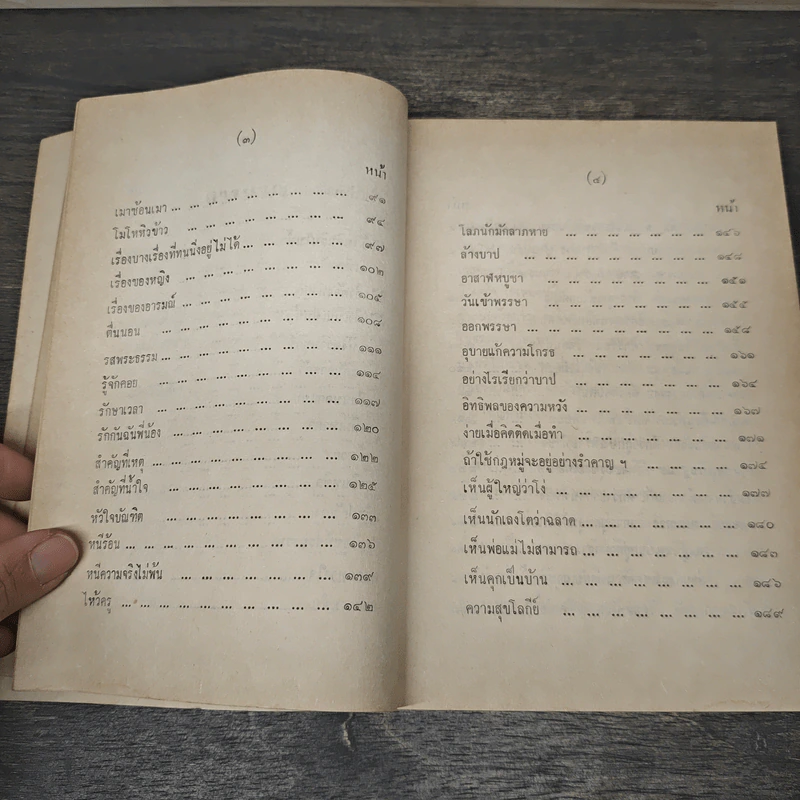 (๓)
หน้า
เมาซ้อนเมา ... ... ... ... ... ... ... ... ๙๑
โมโหหิวข้าว ... ... ... ... ... ... ... ๙๔
เรื่องบางเรื่องที่ทนนิ่งอยู่ไม่ได้ ... ... ... ... ... ๙๗
เรื่องของหญิง ... ... ... ... ... ... ... ๑๐๒
เรื่องของอารมณ์ ... ... ... ... ... ... ... ๑๐๕
ตื่นนอน ... ... ... ... ... ... ... ... ๑๐๘
รสพระธรรม ... ... ... ... ... ... ... ... ๑๑๑
รู้จักคอย ... ... ... ... ... ... ... ... ๑๑๔
รักษาเวลา ... ... ... ... ... ... ... ... ๑๑๗
รักกันฉันพี่น้อง ... ... ... ... ... ... ... ๑๒๐
สำคัญที่เหตุ ... ... ... ... ... ... ... ... ๑๒๒
สำคัญที่น้ำใจ ... ... ... ... ... ... ... ๑๒๕
หัวใจบัณฑิต ... ... ... ... ... ... ... ๑๓๓
หนีร้อน ... ... ... ... ... ... ... ... ... ๑๓๖
หนีความจริงไม่พ้น ... ... ... ... ... ... ... ๑๓๙
ไหว้ครู ... ... ... ... ... ... ... ... ... ๑๔๒
(๔)
หน้า
โลภนักมักลาภหาย ... ... ... ... ... ... ... ๑๔๖
ล้างบาป ... ... ... ... ... ... ... ... ๑๔๘
อาสาฬหบูชา ... ... ... ... ... ... ... ... ๑๕๑
วันเข้าพรรษา ... ... ... ... ... ... ... ... ๑๕๕
ออกพรรษา ... ... ... ... ... ... ... ... ๑๕๘
อุบายแก้ความโกรธ ... ... ... ... ... ... ... ๑๖๑
อย่างไรเรียกว่าบาป ... ... ... ... ... ... ... ๑๖๔
อิทธิพลของความหวัง ... ... ... ... ... ... ... ๑๖๗
ง่ายเมื่อคิดติดเมื่อทำ ... ... ... ... ... ... ... ๑๗๑
ถ้าใช้กฎหมู่จะอยู่อย่างรำคาญ ฯ ... ... ... ... ๑๗๔
เห็นผู้ใหญ่ว่าโง่ ... ... ... ... ... ... ... ... ๑๗๗
เห็นนักเลงโตว่าฉลาด ... ... ... ... ... ... ... ๑๘๐
เห็นพ่อแม่ไม่สามารถ ... ... ... ... ... ... ... ๑๘๓
เห็นคุกเป็นบ้าน ... ... ... ... ... ... ... ๑๘๖
ความสุขโลกีย์ ... ... ... ... ... ... ... ๑๘๙